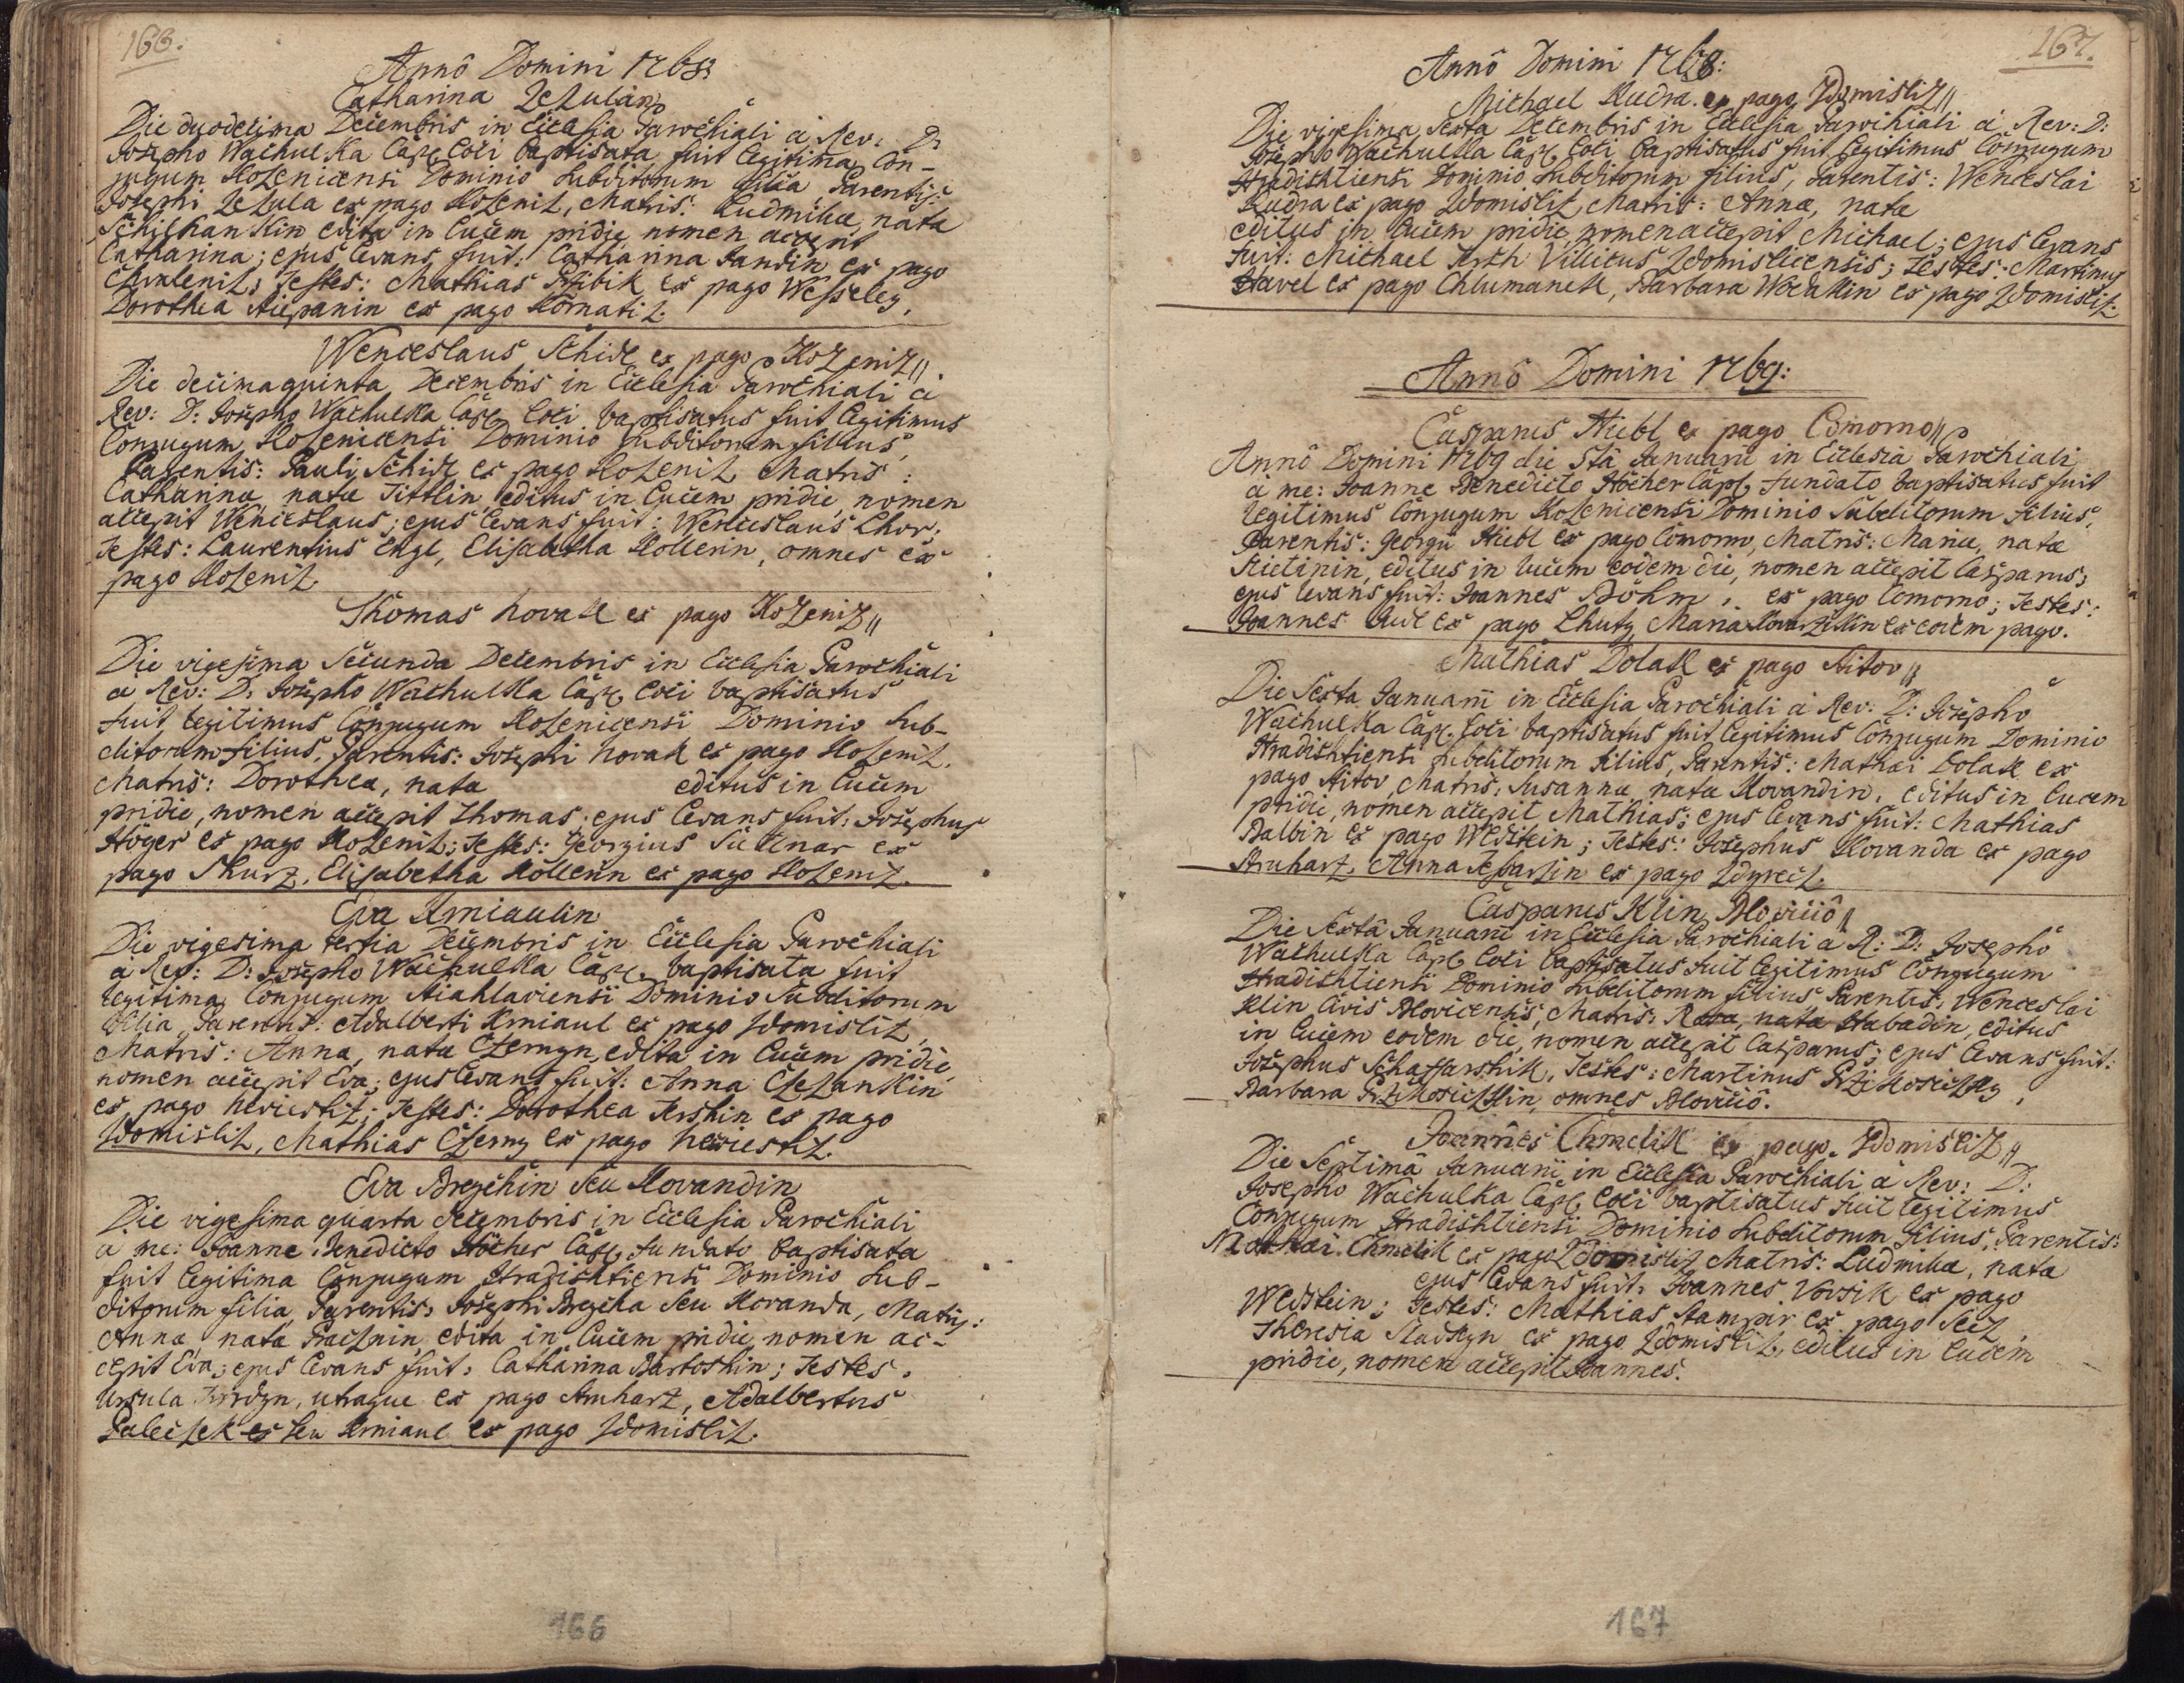 166.
Annô Domini 1768:
Catharina Zezulin
Die duodecima Decembris in Ecclesia Parochiali à Rev: D:
Josepho Wachulka Capl. loci baptisata fuit legitima Con-
jugum Kozenicensi Dominio subditorum filia Parentis:
Josephi Zezula ex pago Kozeniz, Matris: Ludmilæ, nata
edita in lucem pridie nomen accepit
Catharina; ejus levans fuit: Catharina Jandin ex pago
Chwaleniz; Testes: Mathias Przibik ex pago Wesseley,
Dorothea ex pago Kornatiz.
Wenceslaus Schidl ex pago Kozeniz
Die decima quinta Decembris in Ecclesia Parochiali à
Rev: D: Josepho Wachulka Capl. loci baptisatus fuit legitimus
Conjugum Kozenicensi Dominio subditorum filius,
Parentis: Pauli Schidl ex pago Kozeniz Matris:
Catharinæ, natæ Tittlin, editus in lucem pridie, nomen
accepit Wenceslaus; ejus levans fuit: Wenceslaus Chor,
Testes: Laurentius Engl, Elisabetha Kollerin, omnes ex
pago Kozeniz.
Thomas Novak ex pago Kozeniz
Die vigesima secunda Decembris in Ecclesia Parochiali
à Rev: D: Josepho Wachulka Capl. loci baptisatus
fuit legitimus Conjugum Kozenicensi Dominio sub-
ditorum filius, Parentis: Josephi Novak ex pago Kozeniz,
Matris: Dorothea, nata editus in lucem
pridie, nomen accepit Thomas, ejus levans fuit: Josephus
Höger ex pago Kozeniz; Testes: Georgius ex
pago Skurz, Elisabetha Kollerin ex pago Kozeniz.
Eva Kmiaulin
Die vigesima tertia Decembris in Ecclesia Parochiali
à Rev: D: Josepho Wachulka Capl. baptisata fuit
legitima Conjugum Stiahlaviensi Dominio subditorum
filia, Parentis: Adalberti Kmiaul ex pago Zdomisliz,
Matris: Anna, nata Czernyn, edita in lucem pridie,
nomen accepit Eva; ejus levans fuit: Anna Czezankin
ex pago Nezviestiz; Testes: Dorothea Jershin ex pago
Zdomisliz, Mathias Czerny ex pago Nezviestiz.
Eva Brejchin seu Kovandin
Die vigesima quarta Decembris in Ecclesia Parochiali
à me: Joanne Benedicto Höcher Capl. fundato baptisata
fuit legitima Conjugum Hradishtiensi Dominio sub-
ditorum filia, Parentis: Josephi Brejcha seu Kovanda, Matris:
Annæ, nata edita in lucem pridie, nomen ac-
cepit Eva; ejus levans fuit: Catharina Bartoshin; Testes:
Ursula utraque ex pago Struharz, Adalbertus
Paleczek seu Kmiaul ex pago Zdomisliz.
166
167.
Annô Domini 1768:
Michael Kudra ex pago Zdomisliz
Die vigesima sexta Decembris in Ecclesia Parochiali à Rev: D:
Josepho Wachulka Capl. loci baptisatus fuit legitimus Conjugum
Hradishtiensi Dominio subditorum filius, Parentis: Wenceslai
Kudra ex pago Zdomisliz, Matris: Annæ, natæ
editus in lucem pridie, nomen accepit Michael; ejus levans
fuit: Michael Jersh Villicus Zdomislicensis; Testes: Martinus
Havel ex pago Chlumanek, Barbara ex pago Zdomisliz.
Annô Domini 1769:
Casparus Hiebl ex pago Comorno
Annô Domini 1769 die 5tâ Januarii in Ecclesia Parochiali
à me: Joanne Benedicto Höcher Capl. fundato baptisatus fuit
legitimus Conjugum Kozenicensi Dominio subditorum filius,
Parentis: Georgii Hiebl ex pago Comorno, Matris: Mariæ, natæ
editus in lucem eodem die, nomen accepit Casparus;
ejus levans fuit: Joannes Böhm, ex pago Comorno; Testes:
Joannes ex pago Lhuty, Maria Kovarzikin ex eodem pago.
Mathias Dolak ex pago Sitov
Die sexta Januarii in Ecclesia Parochiali à Rev: D: Josepho
Wachulka Capl. loci baptisatus fuit legitimus Conjugum Dominio
Hradishtiensi subditorum filius, Parentis: Mathæi Dolak ex
pago Sitov, Matris: Susannæ, natæ Kovandin, editus in lucem
pridie, nomen accepit Mathias; ejus levans fuit: Mathias
Balbin ex pago Wedstein; Testes: Josephus Kovanda ex pago
Struharz, Anna ex pago Zdyretz.
Casparus Klin Bloviciô
Die sextâ Januarii in Ecclesia Parochiali à R: D: Josepho
Wachulka Capl. loci baptisatus fuit legitimus Conjugum
Hradishtiensi Dominio subditorum filius Parentis: Wenceslai
Klin Civis Blovicensis, Matris: Rosa, nata Habadin, editus
in lucem eodem die, nomen accepit Casparus; ejus levans fuit:
Josephus Schaffarshik, Testes: Martinus Przikosiczky,
Barbara Przikosiczkin, omnes Bloviciô.
Joannes Chmelik ex pago Zdomisliz
Die septimâ Januarii in Ecclesia Parochiali à Rev: D:
Josepho Wachulka Capl. loci baptisatus fuit legitimus
Conjugum Hradishtiensi Dominio subditorum filius, Parentis:
Mathæi Chmelik ex pago Zdomisliz, Matris: Ludmilæ, nata
ejus levans fuit: Joannes Vorsik ex pago
Wedstein; Testes: Mathias Stampir ex pago Seez,
Theresia Sladkyn ex pago Zdomisliz, editus in lucem
pridie, nomen accepit Joannes.
167